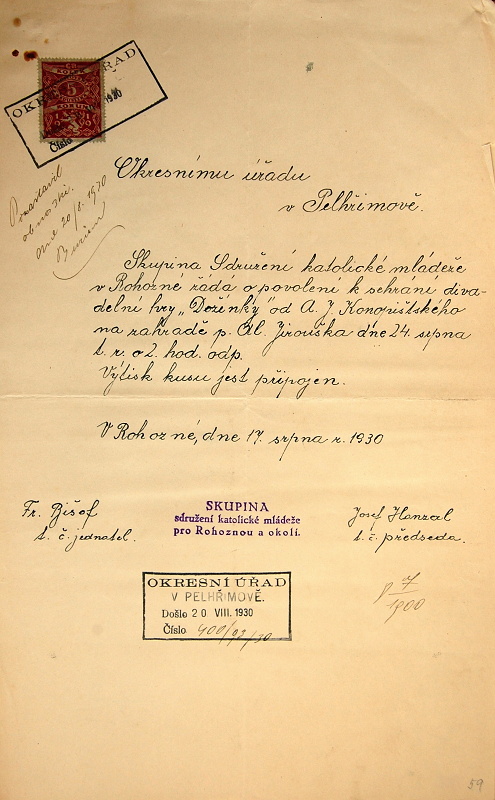 OKRESNÍ ÚŘAD
5
KORUN
1930
Číslo
dne 20/8 1930
Okresnímu úřadu
v Pelhřimově.
Skupina Sdružení katolické mládeže
v Rohozné žádá o povolení k sehrání diva-
delní hry „Dožínky" od A. J. Konopištského
na zahradě p. Al. Jirouška dne 24. srpna
t. r. o 2 hod. odp.
Výtisk kusu jest připojen.
V Rohozné, dne 17. srpna r. 1930
Fr. Bišof
t. č. jednatel.
SKUPINA
sdružení katolické mládeže
pro Rohoznou a okolí.
Josef Hanzal
t. č. předseda.
OKRESNÍ ÚŘAD
V PELHŘIMOVĚ.
Došlo 20 VIII. 1930
Číslo 400/92/30
7
1900
59